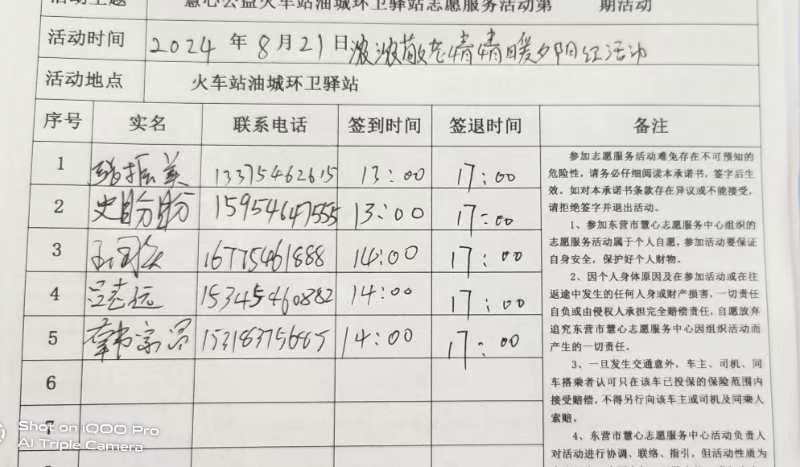 活动主题 慧心公益火车站油城环卫驿站志愿服务活动第 期活动
活动时间 2024 年 8月21日浓浓敬老情情暖夕阳红活动
活动地点 火车站油城环卫驿站
序号 实名 联系电话 签到时间 签退时间 备注
1 振美 13375462615 13:00 17:00
2 史盼盼 15954647555 13:00 17:00
3 16775461888 14:00 17:00
4 吕志远 15345460882 14:00 17:00
5 14:00 17:00
6
7
参加志愿服务活动难免存在不可预知的
危险性,请务必仔细阅读本承诺书,签字后生
效。如对本承诺书条款存在异议或不能接受,
请拒绝签字并退出活动。
1、参加东营市慧心志愿服务中心组织的
志愿服务活动属于个人自愿,参加活动要保证
自身安全,保护好个人财物。
2、因个人身体原因及在参加活动或在往
返途中发生的任何人身或财产损害,一切责任
自负或由侵权人承担完全赔偿责任,自愿放弃
追究东营市慧心志愿服务中心因组织活动而
产生的一切责任。
3、一旦发生交通意外,车主、司机、同
车搭乘者认可只在该车已投保的保险范围内
接受赔偿,不得另行向该车主或司机及同乘人
索赔。
4、东营市慧心志愿服务中心活动负责人
对活动进行协调、联络、指引,但活动性质为
Shot on iQOO Pro
AI Triple Camera